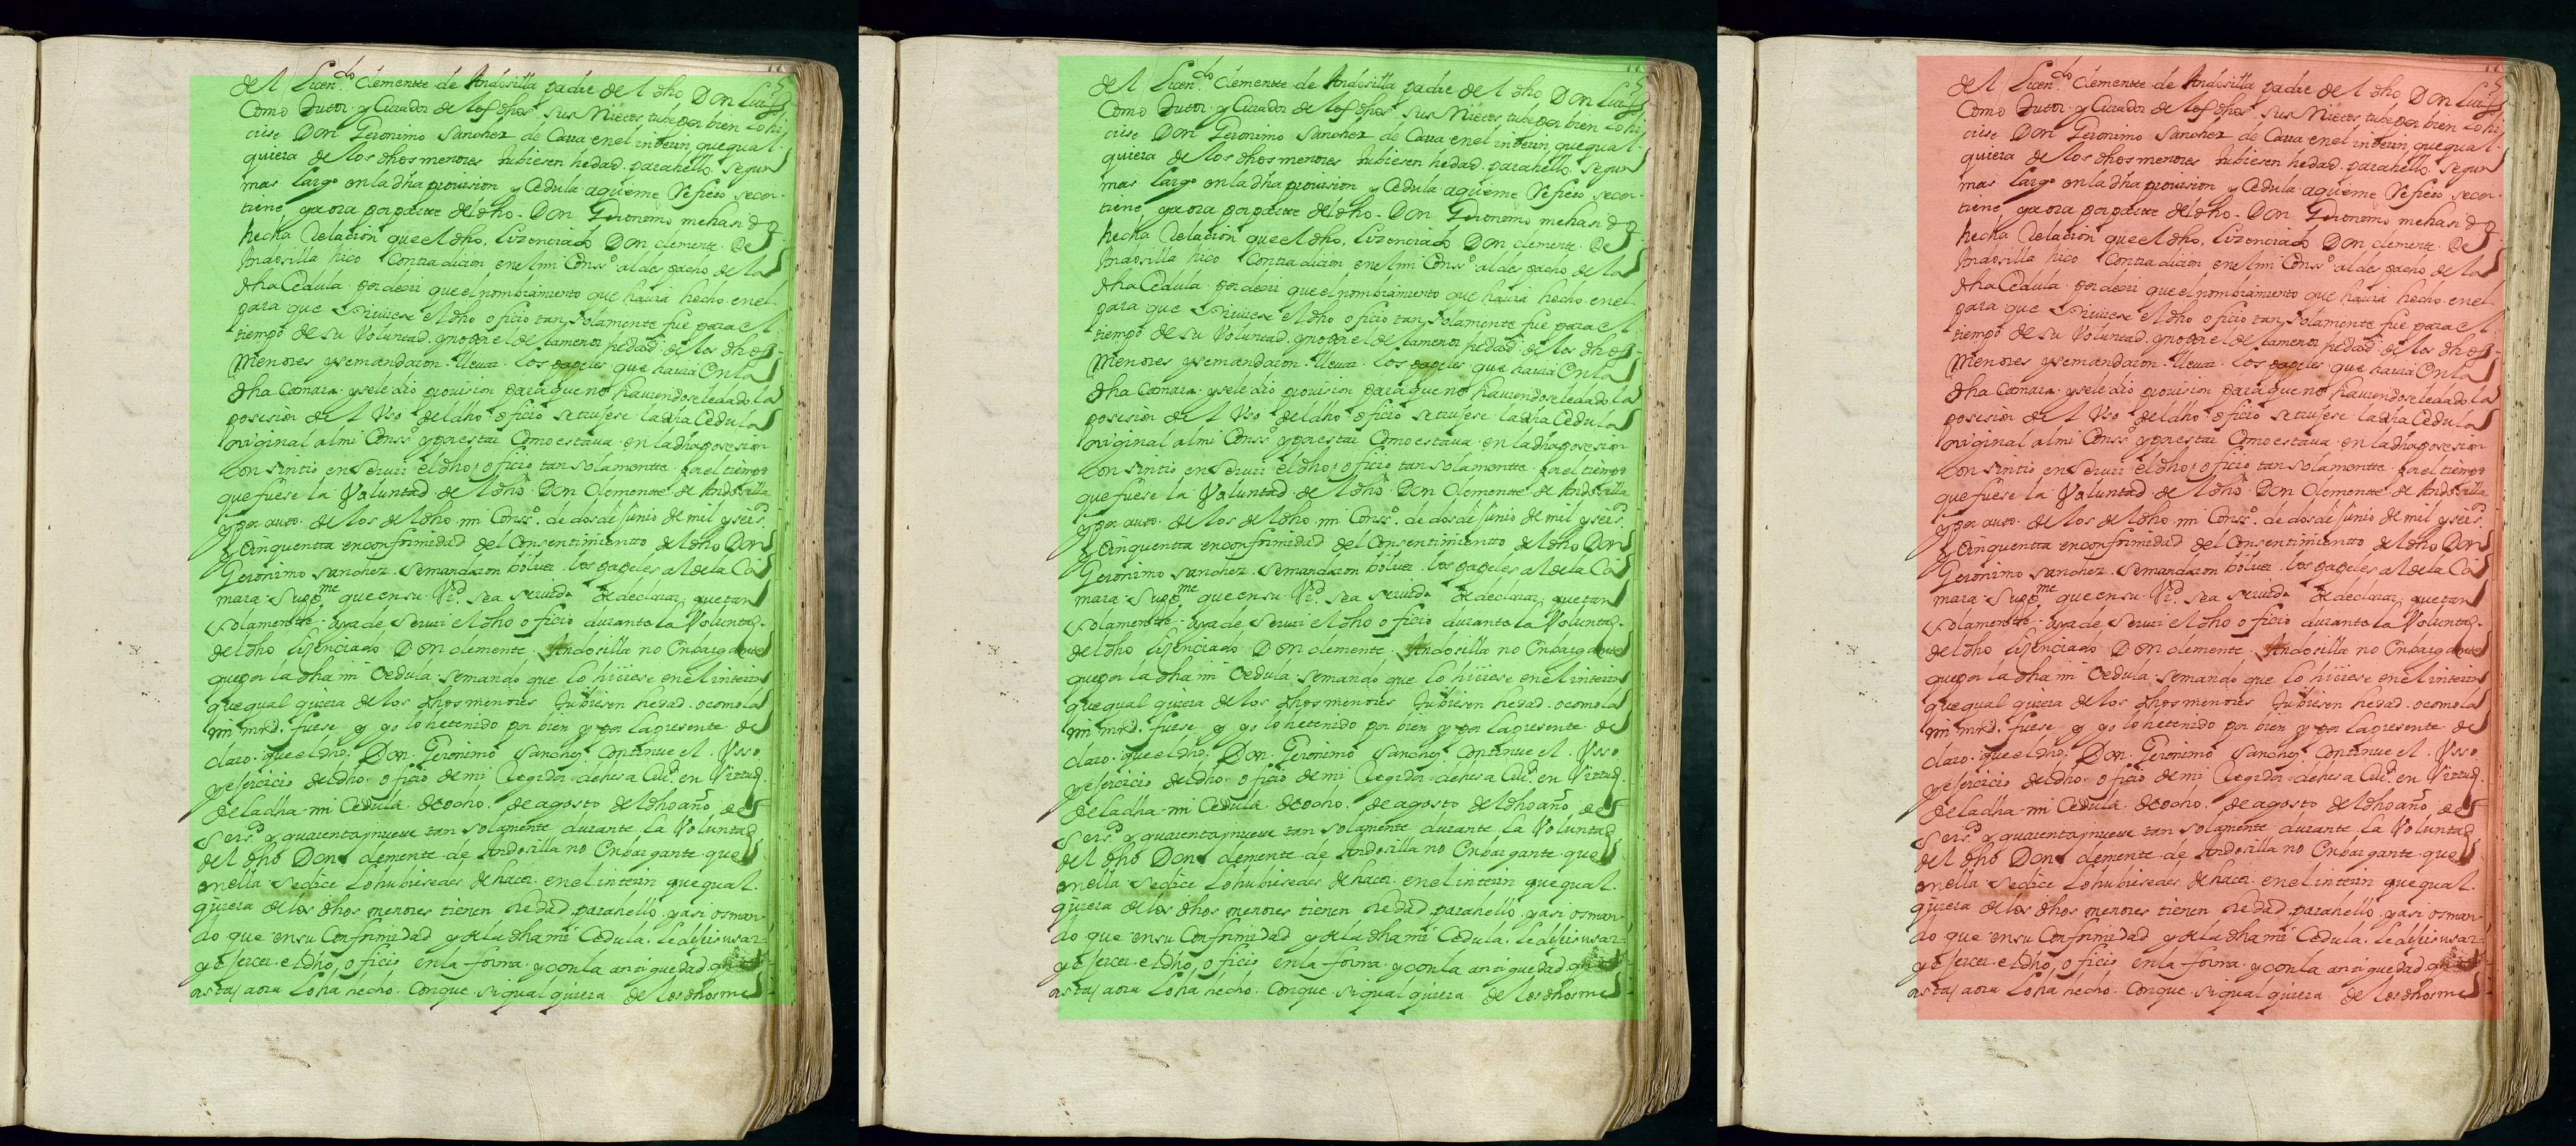 del Licen.do Clemente de Andosilla padre del dho Don Luis
Como tutor y Curador de los dhos sus Nietos tube por bien lo hi
ciese Don Geronimo Sanchez de Caua en el interin que qual
quiera de los dhos menores tubiesen hedad para hello segun
mas largo en la dha prouision y Cedula a que me Refiero se con
tiene y aora por parte del dho Don Geronimo me han do
hecha Relacion que el dho Lizenciado Don Clemente De
Andosilla hico Contradicion en el mi Conss.o al despacho de la
dha Cedula por decir que el nombramiento que hauia hecho en el
para que siruiese el dho oficio tan solamente fue para el
tiempo de su Voluntad y no por el de la menor hedad de los dhos
Menores y se mandaron lleuar los papeles que hauia En la
dha Camara y se le dio prouision para que no hauiendosele dado la
posesion del Vso del dho oficio se trujese la dha Cedula
original al mi Conss.o y por estar Como estaua en la dha posesion
Consintio en Seruir el dho oficio tan solamente por el tiempo
que fuese la Voluntad del dho Don Clemente de Andosilla
y por auto de los del dho mi Conss.o de dos de Junio de mil y seis.os
y Cinquenta en conformidad del Consentimiento del dho Don
Geronimo Sanchez se mandaron boluer los papeles al de la Ca
mara Supp.me que en su Vir.d sea seruido de declarar que tan
solamente aya de Seruir el dho oficio durante la Voluntad
del dho Lizenciado Don Clemente Andosilla no Enbargante
que por la dha mi Cedula se mando que lo hiciese en el interin
que qual quiera de los dhos menores tubiesen hedad o como la
mi mrd. fuese y yo lo he tenido por bien y por la presente de
claro que el dho Don Geronimo Sanchez Continue el Vsso
y ejercicio del dho oficio de mi Regidor de hesa Ciu.d en Virtud
de la dha mi Cedula de ocho de agosto del dho año de
Seis.os y quarenta y nueue tan solamente durante la Voluntad
del dho Don Clemente de Andosilla no Enbargante que
en ella se dice lo hubiesedes de hacer en el interin que qual
quiera de los dhos menores tienen hedad para hello y asi os man
do que en su Conformidad y de la dha mi Cedula le dejeis usar
y ejercer el dho oficio en la forma y con la antiguedad que
asta aora lo ha hecho Conque si qual quiera de los dhos me